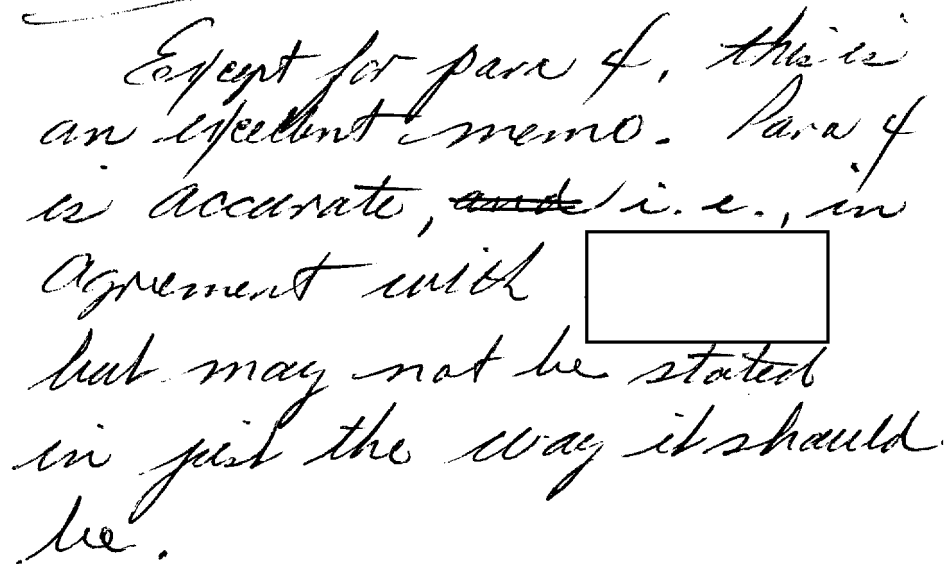 Except for para 4, this is
an excellent memo. Para 4
is accurate, and i.e., in
agreement with
but may not be stated
in just the way it should
be.